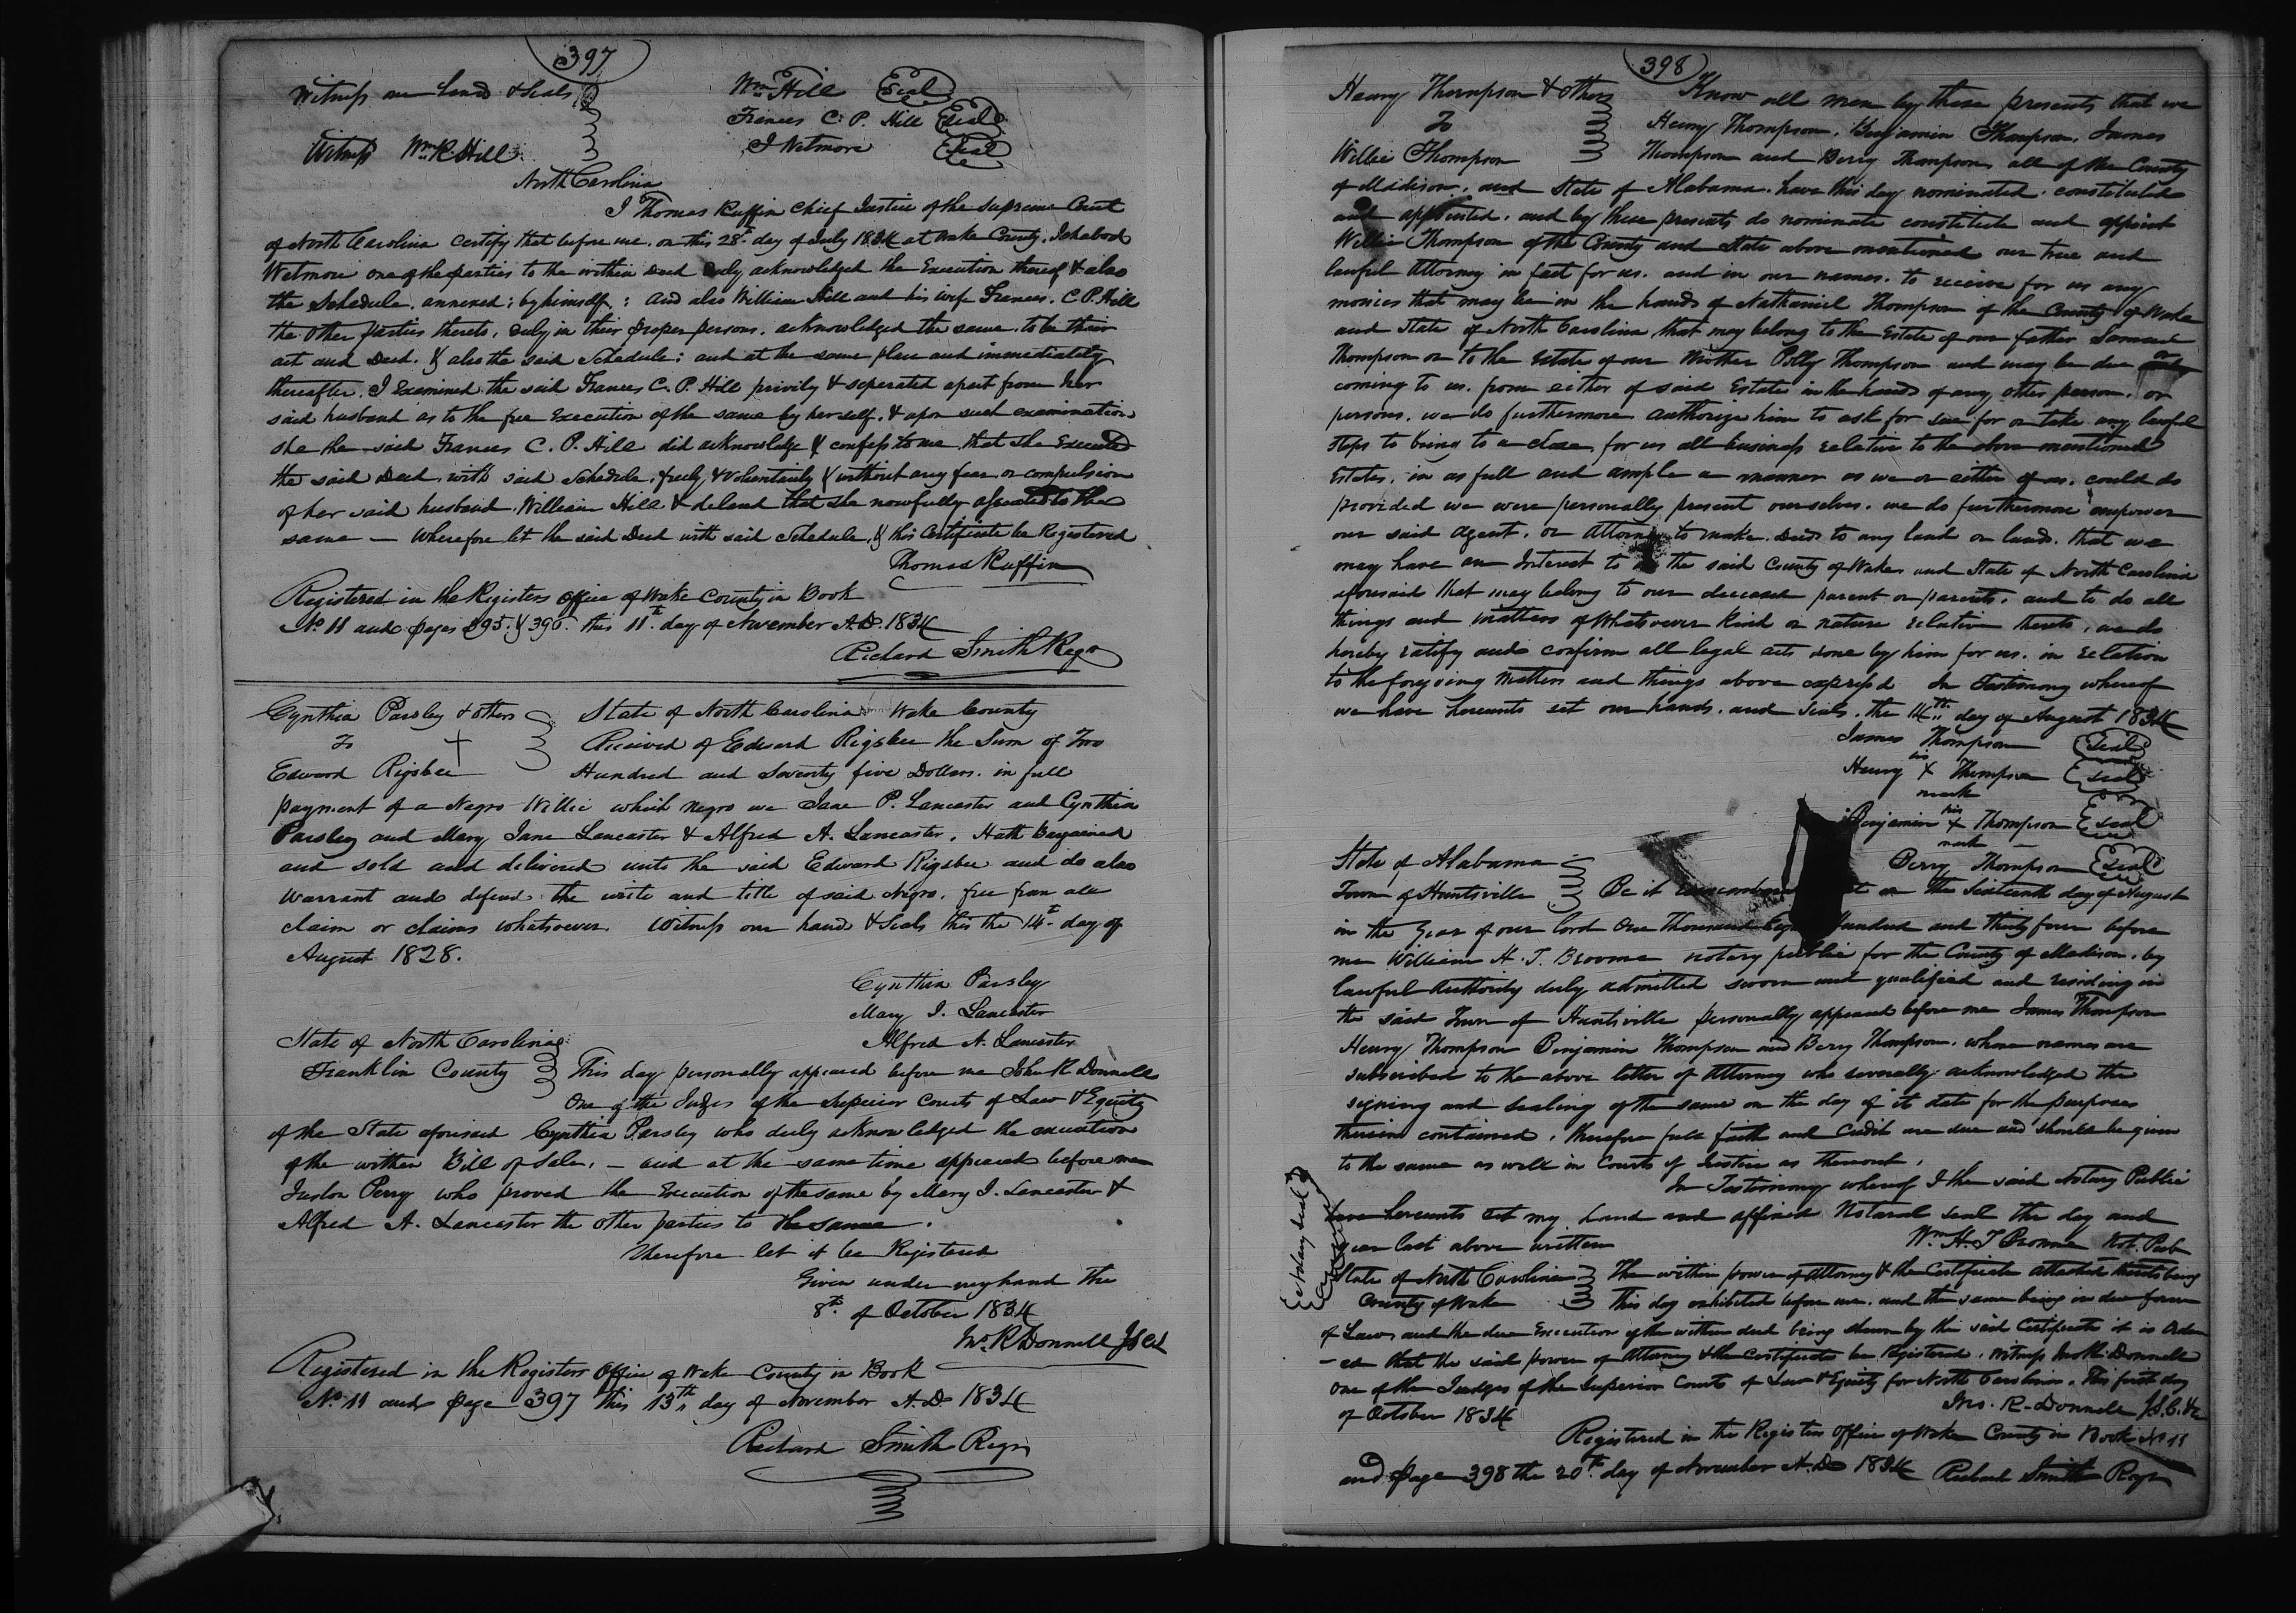 397
Witness our hands & Seals Wm Hill Seal
Frances C. P. Hill Seal
Witness Wm R. Hill I Wetmore Seal
North Carolina
I Thomas Ruffin Chief Justice of the Supreme Court
of North Carolina certify that before me, on this 28th day of July 1834 at Wake County, Ichabod
Wetmore one of the parties to the within Deed duly acknowledged the Execution thereof & also
the Schedule, annexed; by himself; and also William Hill and his wife Frances. C. P. Hill
the other parties thereto, duly in their proper persons, acknowledged the same, to be their
act and Deed, & also the said Schedule; and at the same place and immediately
thereafter, I Examined the said Frances C. P. Hill privily & seperated apart from her
said husband as to the free Execution of the same by herself, & upon such examination
she the said Frances C. P. Hill did acknowledge & confess to me that she Executed
the said Deed, with said Schedule, freely & voluntarily & without any fear or compulsion
of her said husband, William Hill & declared that she now fully assented to the
same — Wherefore let the said Deed with said Schedule, & this Certificate be Registered
Thomas Ruffin
Registered in the Registers Office of Wake County in Book
No 11 and pages 395. & 396. this 11th day of November A.D. 1834
Richard Smith Regr
Cynthia Parsley & others State of North Carolina Wake County
To Received of Edward Rigsbee the Sum of Two
Edward Rigsbee Hundred and Seventy five Dollars. in full
payment of a Negro Willie which negro we Jane P. Lancaster and Cynthia
Parsley and Mary Jane Lancaster & Alfred A. Lancaster, Hath Bargained
and sold and delivered unto the said Edward Rigsbee and do also
Warrant and defend the write and title of said Negro, free from all
claim or claims whatsoever. Witness our hands & Seals this the 14th day of
August 1828.
Cynthia Parsley
Mary J. Lancaster
State of North Carolina Alfred A. Lancaster
Franklin County This day personally appeared before me John R. Donnell
One of the Judges of the Superior Courts of Law & Equity
of the State aforesaid Cynthia Parsley who duly acknowledged the execution
of the within Bill of Sale, — and at the same time appeared before me
Perry who proved the Execution of the same by Mary J. Lancaster &
Alfred A. Lancaster the other parties to the same.
Therefore let it be Registered
Given under my hand the
8th of October 1834
Jno. R. Donnell
Registered in the Registers Office of Wake County in Book
No 11 and page 397 this 13th day of November A.D 1834
Richard Smith Regr
398
Henry Thompson & others Know all men by these presents that we
To Henry Thompson, Benjamin Thompson, James
Willie Thompson Thompson and Berry Thompson, all of the County
of Madison, and State of Alabama, have this day nominated, constituted
and appointed, and by these presents do nominate constitute and appoint
Willie Thompson of the County and State above mentioned our true and
lawful Attorney in fact for us, and in our names, to receive for us any
monies that may be in the hands of Nathaniel Thompson of the County of Wake
and State of North Carolina, that may belong to the Estate of our father Samuel
Thompson or to the Estate of our Mother Polly Thompson and may be due or
coming to us, from either of said Estate in the hands of any other person, or
persons, we do furthermore authorize him to ask for sue for or take any lawful
steps to bring to a close for us all business relative to the above mentioned
Estates, in as full and ample a manner as we or either of us, could do
provided we were personally present ourselves. we do furthermore empower
our said Agent, or Attorney to make Deeds to any land or lands. that we
may have an Interest to the said County of Wake and State of North Carolina
aforesaid that may belong to our deceased parent or parents, and to do all
things and matters of whatsoever kind or nature relative thereto, we do
hereby ratify and confirm all legal acts done by him for us, in relation
to the foregoing matters and things above expressed In Testimony whereof
we have hereunto set our hands, and seals, the 14th day of August 1834
James Thompson Seal
his
Henry X Thompson Seal
mark
his
Benjamin X Thompson Seal
mark
State of Alabama Berry Thompson Seal
Town of Huntsville Be it remembered on the Sixteenth day of August
in the Year of our Lord One Thousand Hundred and thirty four before
me William H. J. Broome notary public for the County of Madison, by
lawful Authority duly admitted sworn and qualified and residing in
the said Town of Huntsville personally appeared before me James Thompson
Henry Thompson Benjamin Thompson and Berry Thompson, whose names are
subscribed to the above letter of Attorney who severally acknowledged the
signing and sealing of the same on the day of it date for the purposes
therein contained, therefore full faith and Credit are due and should be given
to the same as well in Courts of Justice as thereout,
In Testimony whereof I the said Notary Public
have hereunto set my hand and affixed Notarial Seal the day and
year last above written Wm H. J Broome Not. Pub
State of North Carolina The within power of Attorney & the Certificate attached thereto being
County of Wake this day exhibited before me, and the same being in due form
of Law and the due Execution of the within deed being shewn by the said Certificate it is Order
-ed that the said power of Attorney & the Certificate be Registered. Witness Donnell
one of the Judges of the Superior Courts of Law & Equity for North Carolina, This first day
of October 1834 Jno. R. Donnell
Registered in the Registers Office of Wake County in Book No 11
and page 398 the 20th day of November A.D 1834 Richard Smith Regr